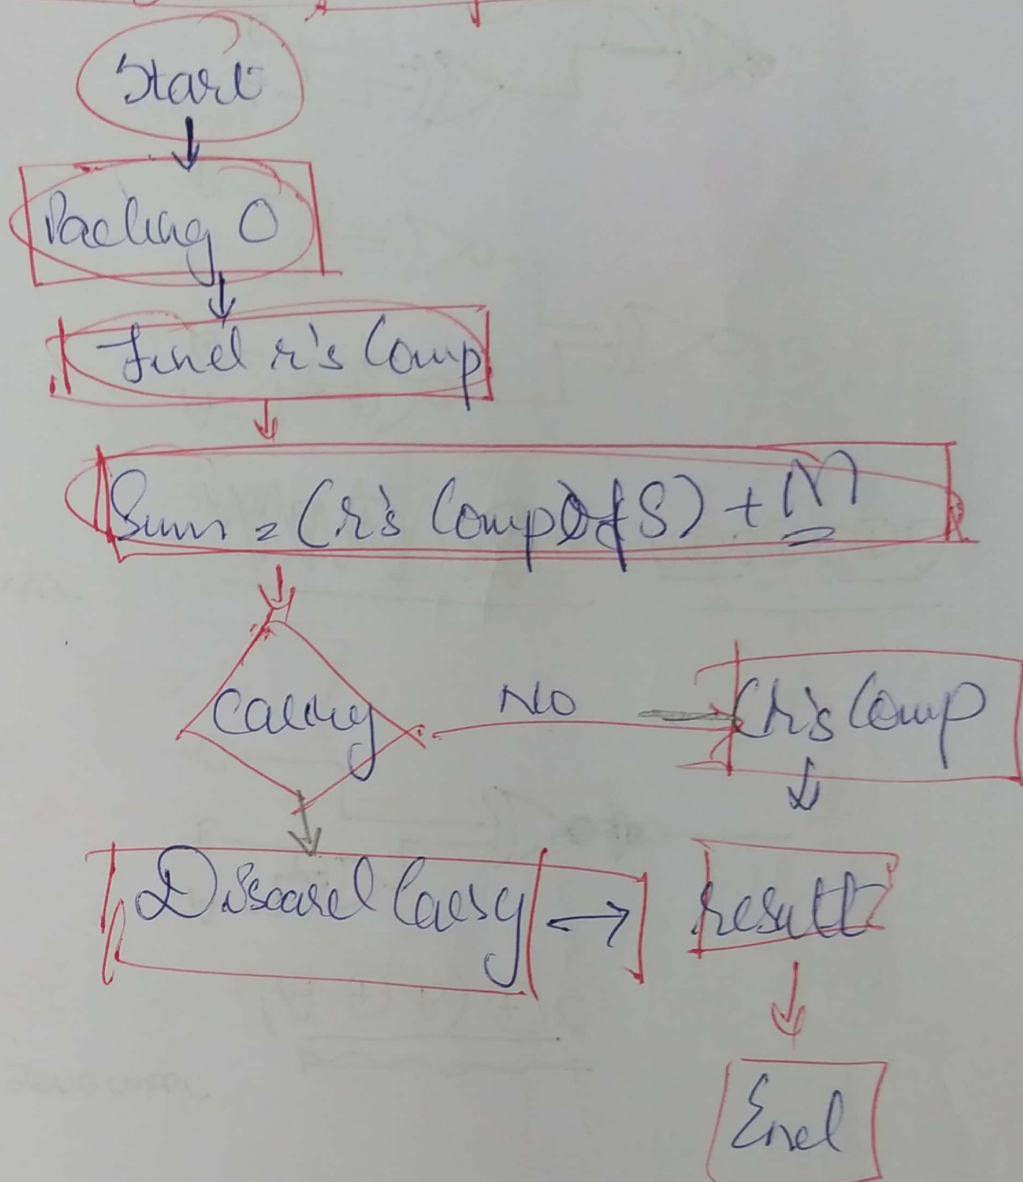 Start
Padding 0
Find r's Comp
Sum = (r's Comp Of S) + M
Carry
No
r's Comp
Discard Carry
result
End